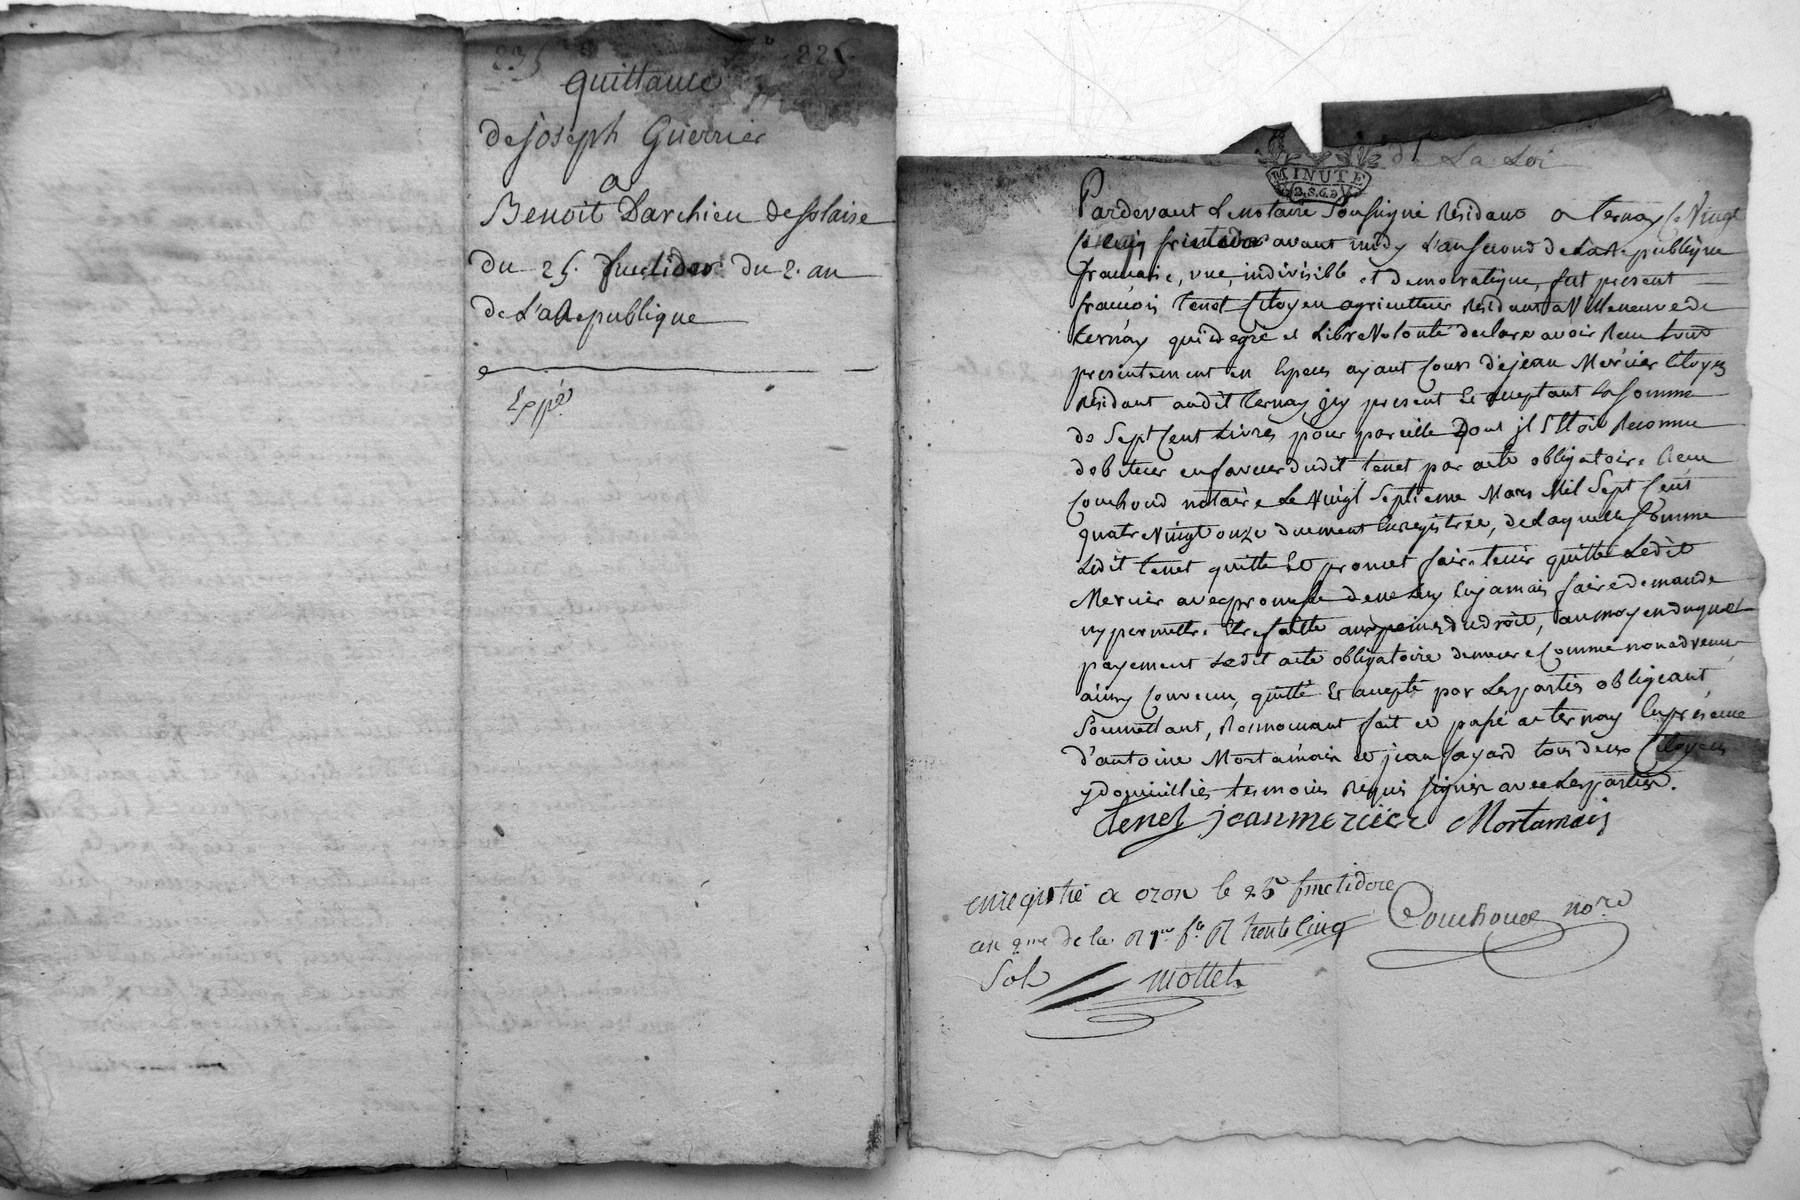 235
225
quittance
de joseph Guerrier
a
Benoit Darchieu de solaise
du 25. fructidor du 2. an
de L'a Republique
Exppé
de La Loi
MINUTE
Pardevant Le notaire Soussigné Résidant a ternay Ce Vingt
Cinq fructidor avant midy L'an second de La Republique
francaise, une, indivisible et democratique, fut present
francois tenet Citoyen agriculteur Residant a Villeneuve de
ternay qui de gré et Libre Volonté declare avoir Recu tout
presentement en Especes ayant Cours de jean Mercier Citoyen
Residant audit ternay jcy present et aceptant La somme
de Sept Cent Livres pour pareille Dont jl S'Etoit Reconnu
debiteur en faveur dudit tenet par acte obligatoire Recu
Couchoud notaire Le Vingt Septieme Mars Mil Sept Cent
quatre Vingt onze duement Enregistrée, de Laquelle Somme
Ledit tenet quitte Et promet faire tenir quitte Ledit
Mercier avec promesse de ne Luy En jamais faire demande
ny permettre Etre faitte aux peines du droit, au moyen duquel
payement Ledit acte obligatoire demeure Comme non advenu
ainsy Convenu, quitté Et acepté par Les parties obligeant,
Soumettant, Renoncant fait et passé a ternay En présence
d'antoine Mortamais et jean fayard tous deux Citoyens
y domicilliés temoins Requis signer avec Les parties.
tenet jean mercier Mortamais
enregistré a ozon le 25 fructidore
an 2me de la R que fse R trente Cinq
Sols Mottet
Couchoud nore